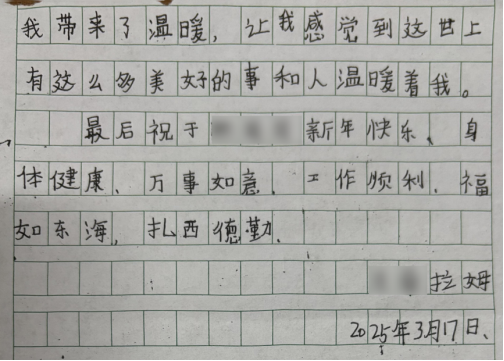 我带来了温暖，让我感觉到这世上
有这么多美好的事和人温暖着我。
最后祝于 新年快乐、身
体健康、万事如意、工作顺利、福
如东海，扎西德勤、
拉姆
2025年3月17日、